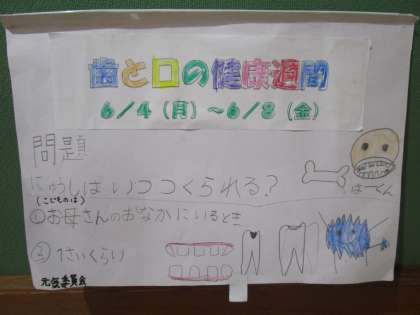 歯と口の健康週間
6/4(月)~6/8(金)
問題
にゅうしはいつつくられる?
(こどものは)
はーくん
①お母さんのおなかにいるとき
②6さいくらい
元気委員会